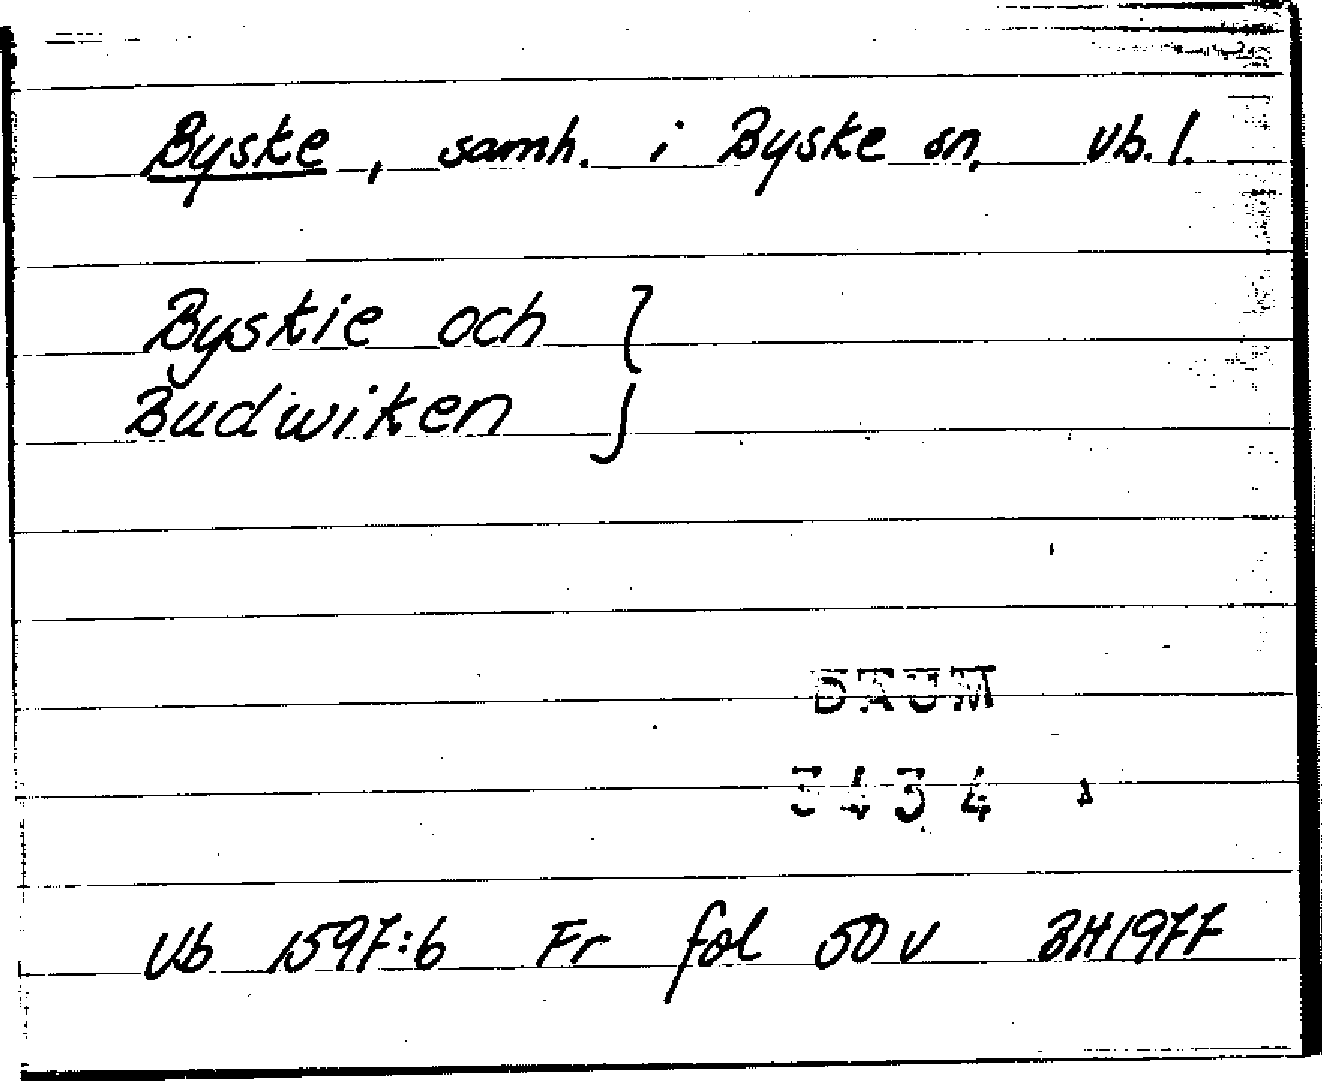 Byske, samh. i Byske sn, Vb. l.
Byskie och }
Budwiken
DAUM
3434
Vb 1597:6 Fr fol 50 v BH1977